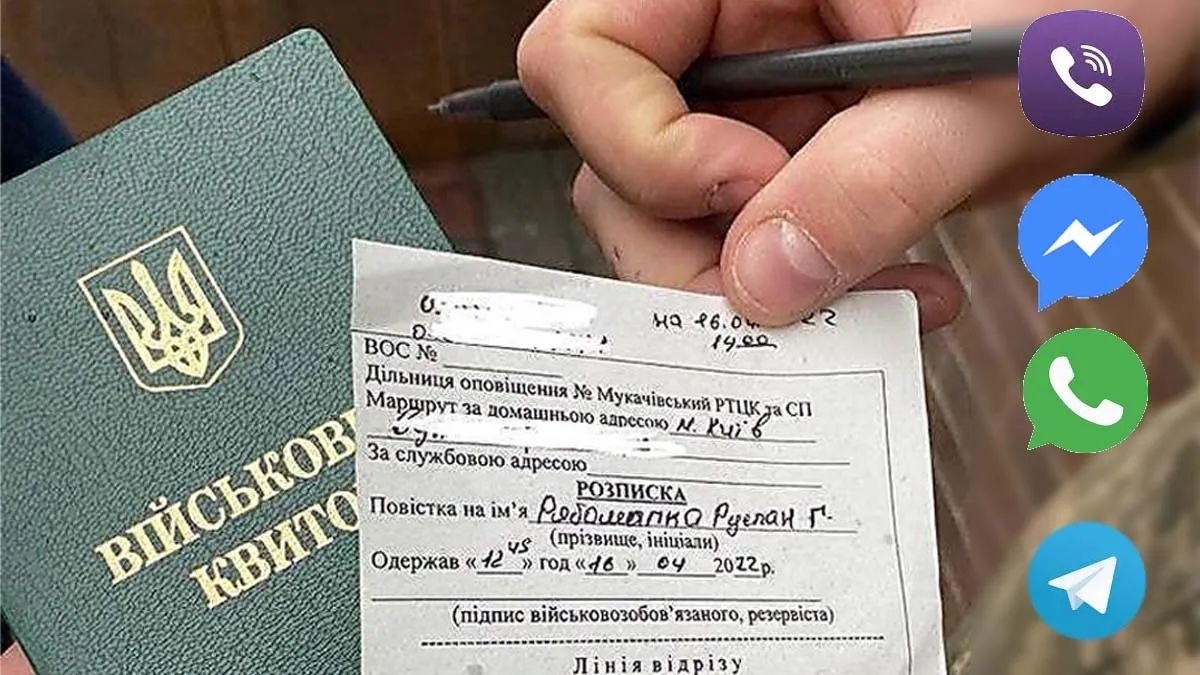 ВІЙСЬКОВ
КВИТО
на 16.04 22
14 00
ВОС №
Дільниця оповіщення № Мукачівський РТЦК та СП
Маршрут за домашньою адресою м. Київ
За службовою адресою
РОЗПИСКА
Повістка на ім'я Руслан Г.
(прізвище, ініціали)
Одержав «12 45» год «16» 04 2022 р.
(підпис військовозобов'язаного, резервіста)
Лінія відрізу